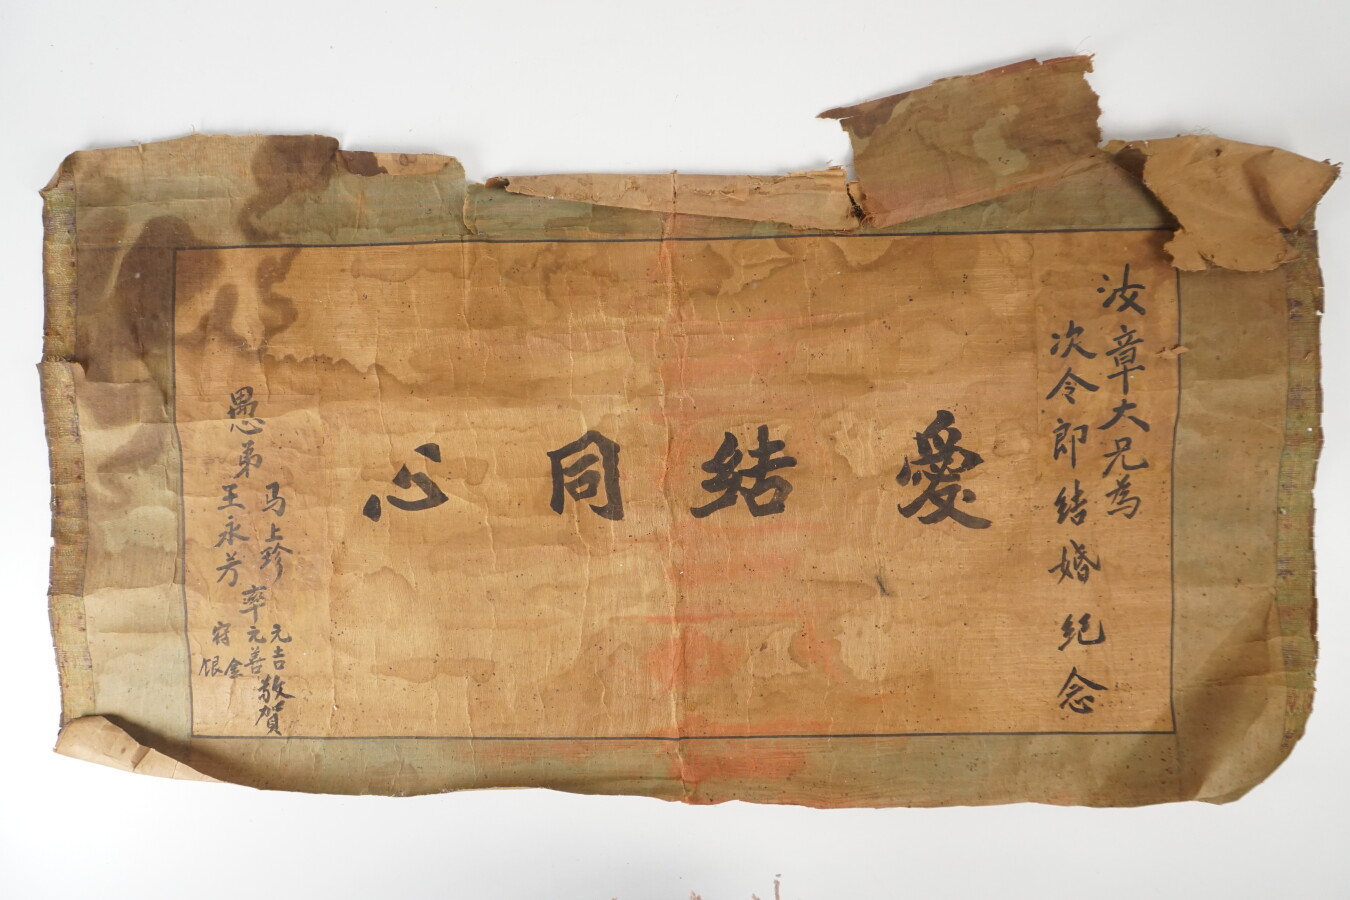 汝章大兄為
次令郎结婚纪念
愛结同心
马上珍
愚弟王永芳
率
元吉
元善
金
银
敬賀